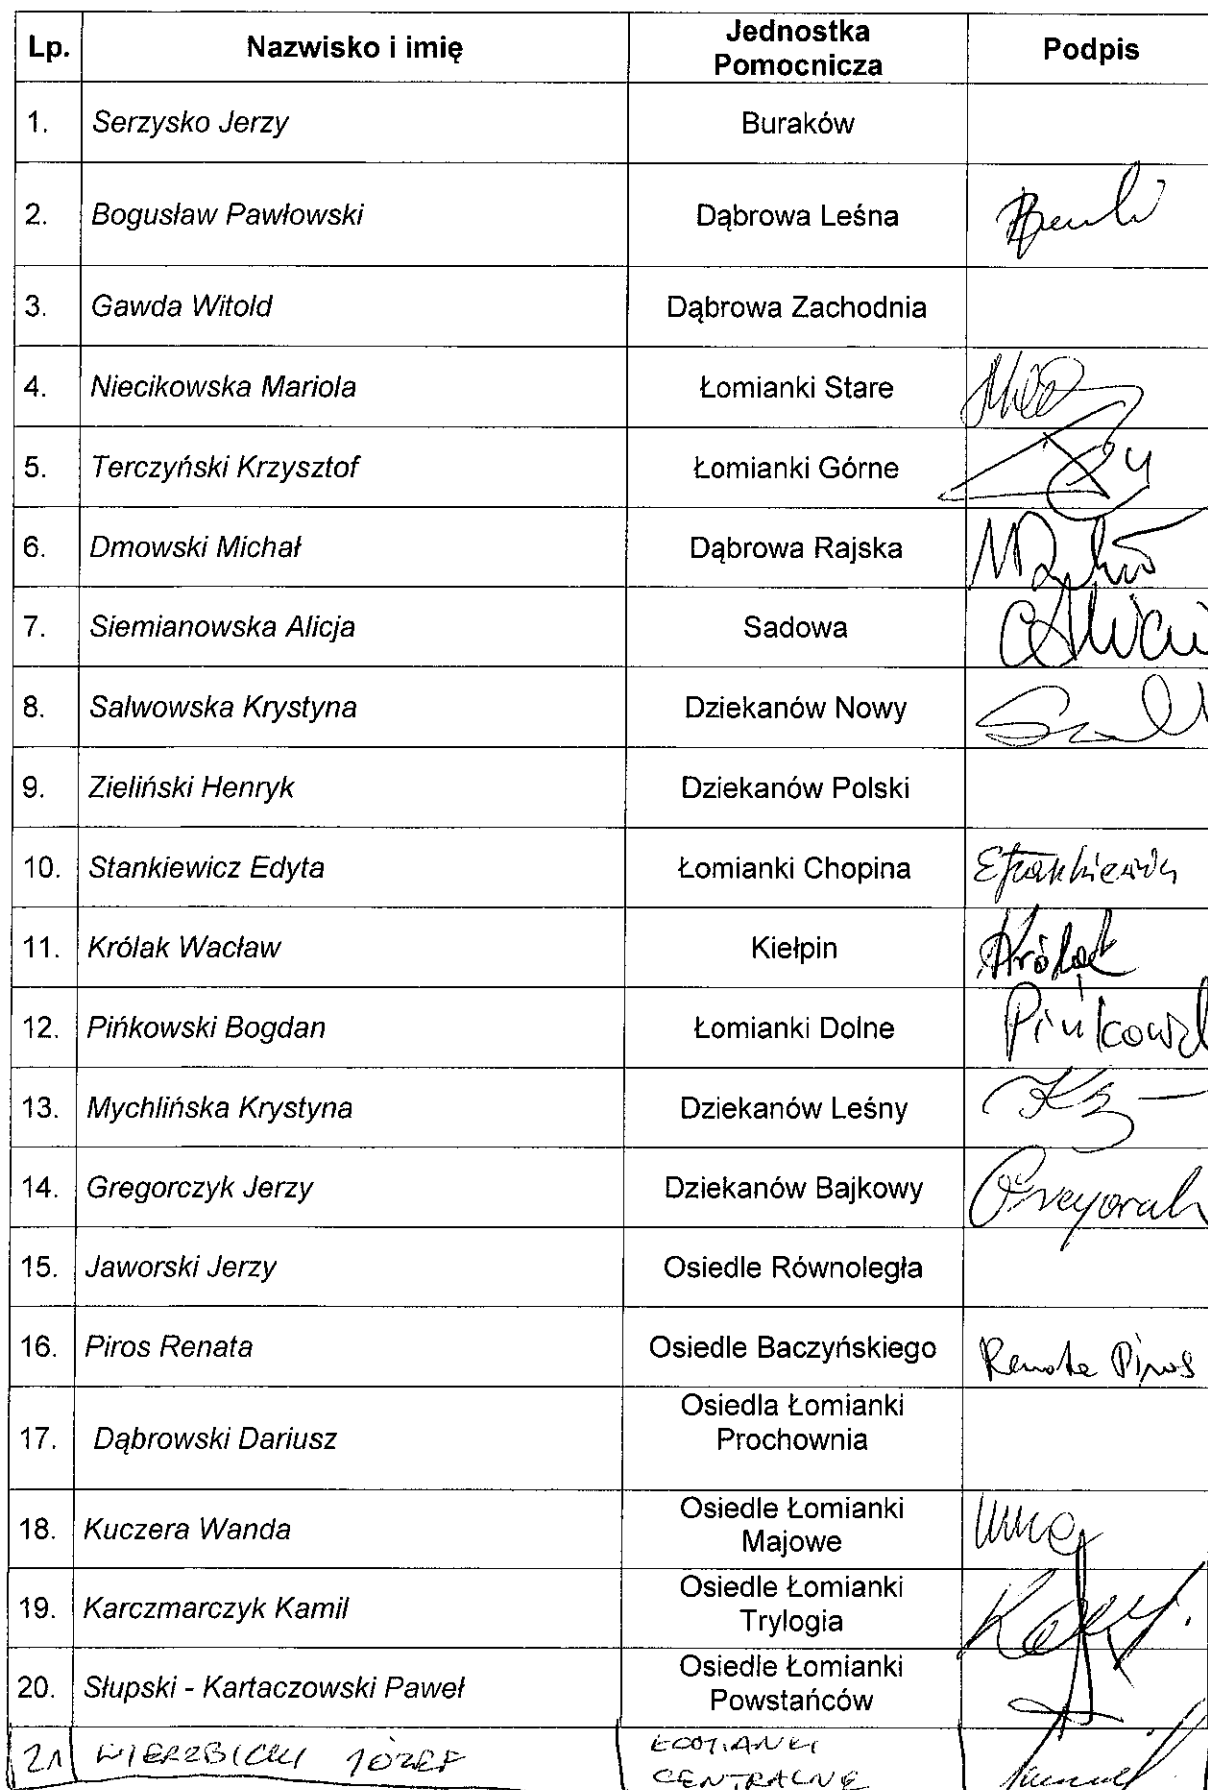 Lp. Nazwisko i imię Jednostka Pomocnicza Podpis
1. Serzysko Jerzy Buraków
2. Bogusław Pawłowski Dąbrowa Leśna
3. Gawda Witold Dąbrowa Zachodnia
4. Niecikowska Mariola Łomianki Stare
5. Terczyński Krzysztof Łomianki Górne
6. Dmowski Michał Dąbrowa Rajska
7. Siemianowska Alicja Sadowa
8. Salwowska Krystyna Dziekanów Nowy
9. Zieliński Henryk Dziekanów Polski
10. Stankiewicz Edyta Łomianki Chopina EStankiewicz
11. Królak Wacław Kiełpin Królak
12. Pińkowski Bogdan Łomianki Dolne
13. Mychlińska Krystyna Dziekanów Leśny
14. Gregorczyk Jerzy Dziekanów Bajkowy
15. Jaworski Jerzy Osiedle Równoległa
16. Piros Renata Osiedle Baczyńskiego Renata Piros
17. Dąbrowski Dariusz Osiedla Łomianki Prochownia
18. Kuczera Wanda Osiedle Łomianki Majowe
19. Karczmarczyk Kamil Osiedle Łomianki Trylogia
20. Słupski - Kartaczowski Paweł Osiedle Łomianki Powstańców
21 WIERZBICKI JÓZEF ŁOMIANKI CENTRALNE